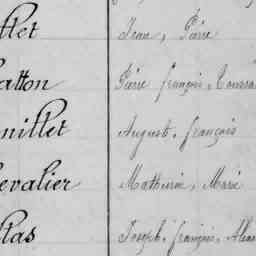 llet Jean, Pierre
atton Pierre françois, Toussa
nillet Auguste, françois
evalier Mathurin, Marie
llas Joseph, françois, Alexa